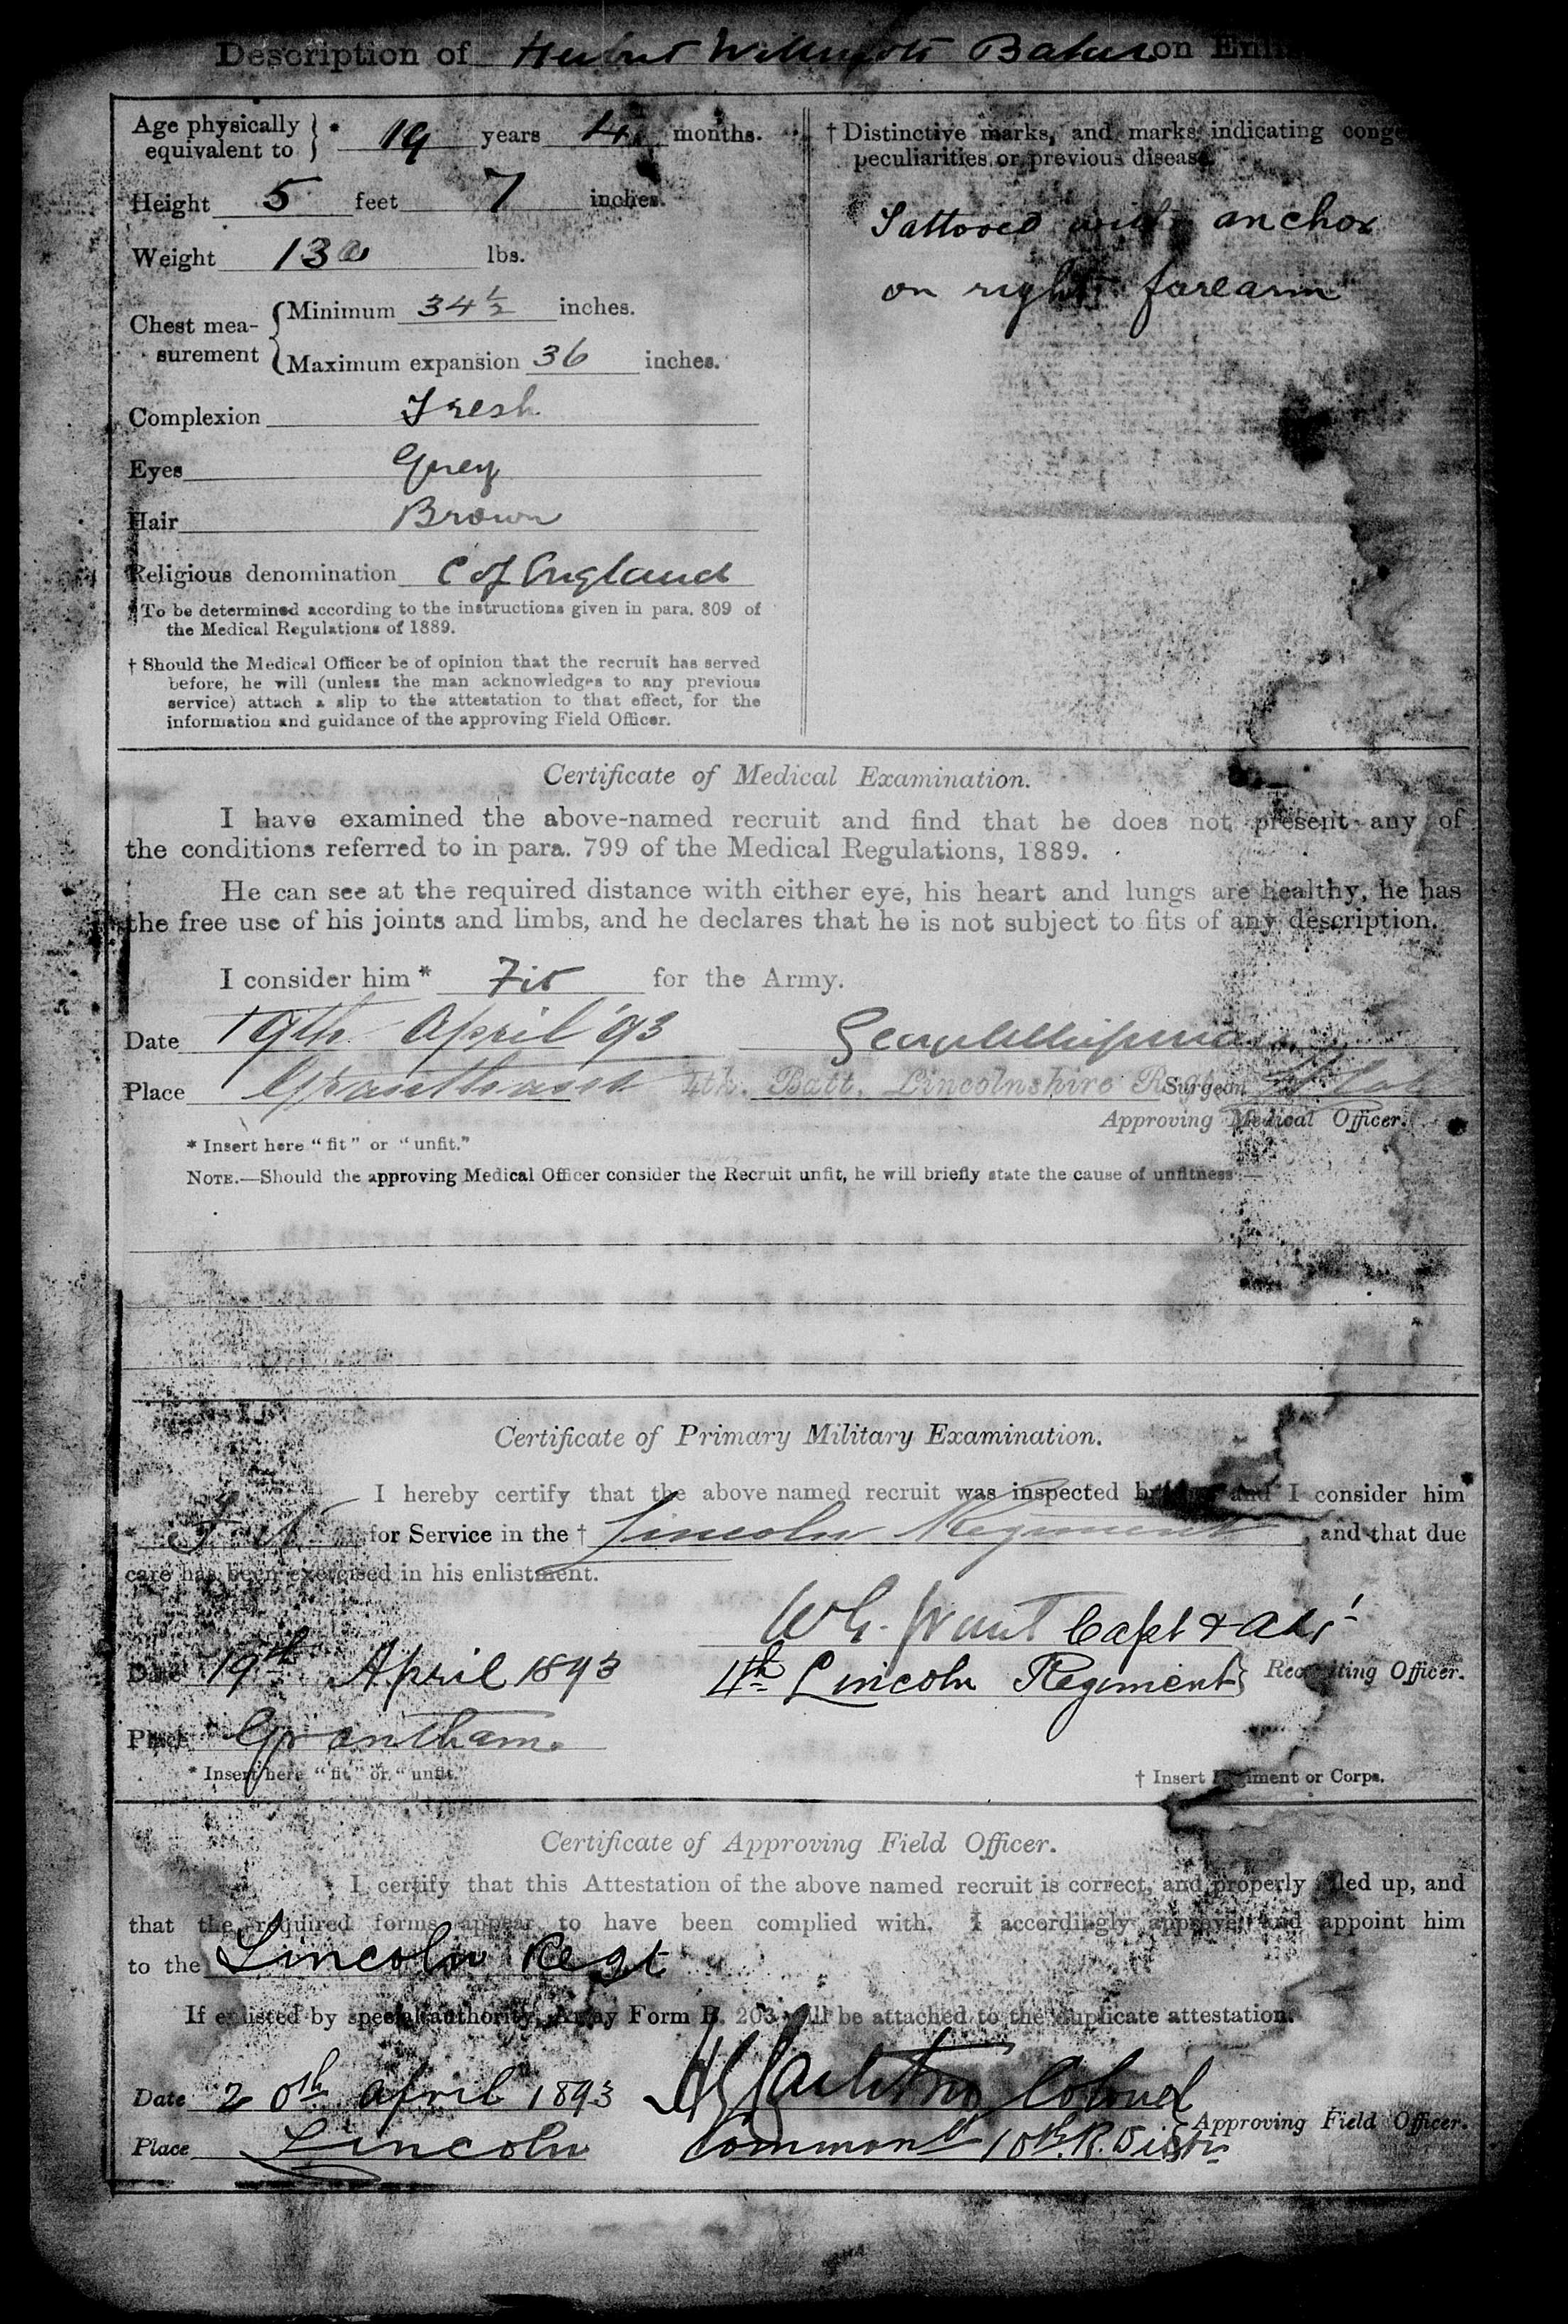 Description of Herbert Baker on
Age physically equivalent to } * 19 years 4 months.
Height 5 feet 7 inches.
Weight 130 lbs.
Chest mea-surement { Minimum 34 ½ inches.
Maximum expansion 36 inches.
Complexion Fresh
Eyes Grey
Hair Brown
Religious denomination C of England
* To be determined according to the instructions given in para. 809 of
the Medical Regulations of 1889.
† Should the Medical Officer be of opinion that the recruit has served
before, he will (unless the man acknowledges to any previous
service) attach a slip to the attestation to that effect, for the
information and guidance of the approving Field Officer.
† Distinctive marks, and marks indicating
peculiarities or previous disease.
Tattooed with anchor
on right forearm
Certificate of Medical Examination.
I have examined the above-named recruit and find that he does not present any of
the conditions referred to in para. 799 of the Medical Regulations, 1889.
He can see at the required distance with either eye, his heart and lungs are healthy, he has
the free use of his joints and limbs, and he declares that he is not subject to fits of any description.
I consider him * Fit for the Army.
Date 19th April '93
Place Grantham 4th. Batt. Lincolnshire Surgeon
Approving Medical Officer.
* Insert here "fit" or "unfit."
NOTE.—Should the approving Medical Officer consider the Recruit unfit, he will briefly state the cause of unfitness:—
Certificate of Primary Military Examination.
I hereby certify that the above named recruit was inspected by and I consider him
* Fit for Service in the † Lincoln Regiment, and that due
care has been exercised in his enlistment.
Capt &
Date 19th April 1893 4th Lincoln Regiment } Recruiting Officer.
Place Grantham.
* Insert here "fit" or "unfit."
† Insert Regiment or Corps.
Certificate of Approving Field Officer.
I certify that this Attestation of the above named recruit is correct, and properly filled up, and
that the required forms appear to have been complied with. I accordingly approve, and appoint him
to the Lincoln Regt
If enlisted by special authority, Army Form B. 203 will be attached to the duplicate attestation.
Date 20th April 1893 Colonel
Place Lincoln 10th R. } Approving Field Officer.